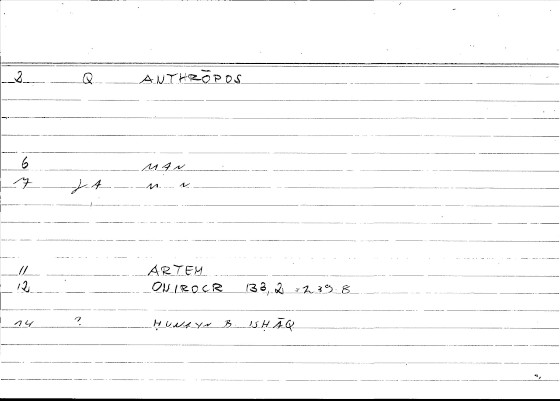 2 Q ANTHRŌPOS
6 MAN
7 M N
11 ARTEM
12 ONIROCR 133,2 = 239 8
14 ? ḤUNAYN B ISḤĀQ